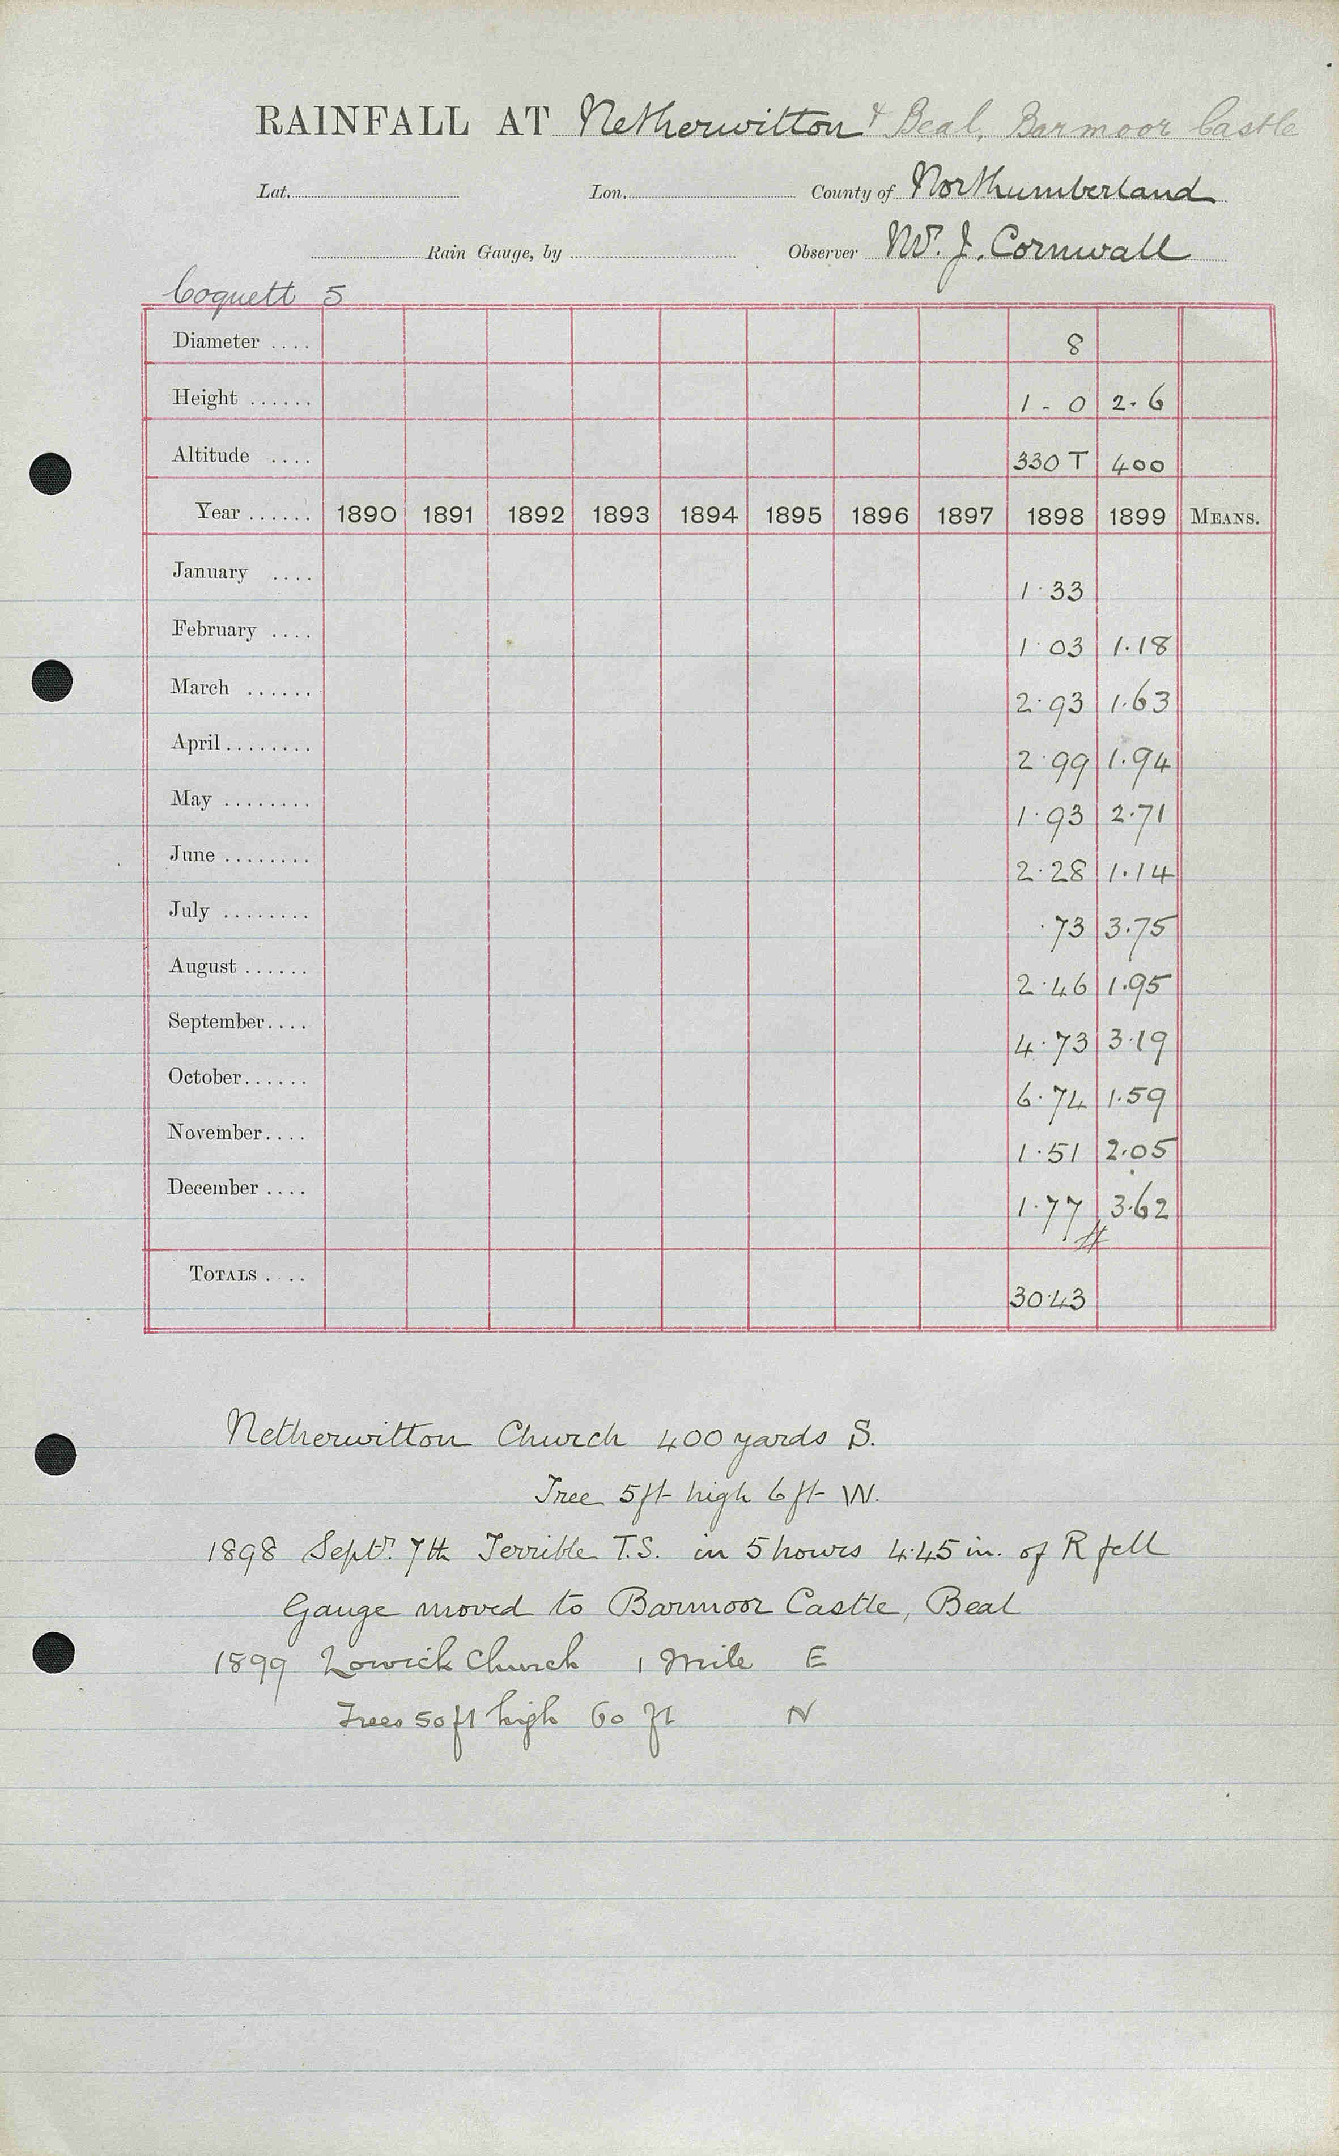 RAINFALL AT Netherwitton & Beal, Barmoor Castle
Lat. Lon. County of Northumberland
Rain Gauge, by Observer W. J. Cornwall
Coquett 5
Diameter .... 8
Height ...... 1 - 0 2 - 6
Altitude .... 330 T 400
Year ...... 1890 1891 1892 1893 1894 1895 1896 1897 1898 1899 MEANS.
January .... 1·33
February .... 1·03 1·18
March ...... 2·93 1·63
April ........ 2·99 1·94
May ........ 1·93 2·71
June ........ 2·28 1·14
July ........ ·73 3·75
August ...... 2·46 1·95
September.... 4·73 3·19
October...... 6·74 1·59
November.... 1·51 2·05
December .... 1·77 3·62
#
TOTALS .... 30·43
Netherwitton Church 400 yards S.
Tree 5ft high 6ft W.
1898 Septr. 7th Terrible T.S. in 5 hours 4·45 in. of R fell
Gauge moved to Barmoor Castle, Beal
1899 Lowick Church 1 Mile E
Trees 50 ft high 60 ft N